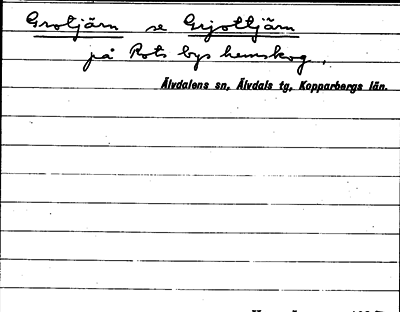 Grotjärn se Grjottjärn
på Rots bys hemskog.
Älvdalens sn, Älvdals tg, Kopparbergs län.